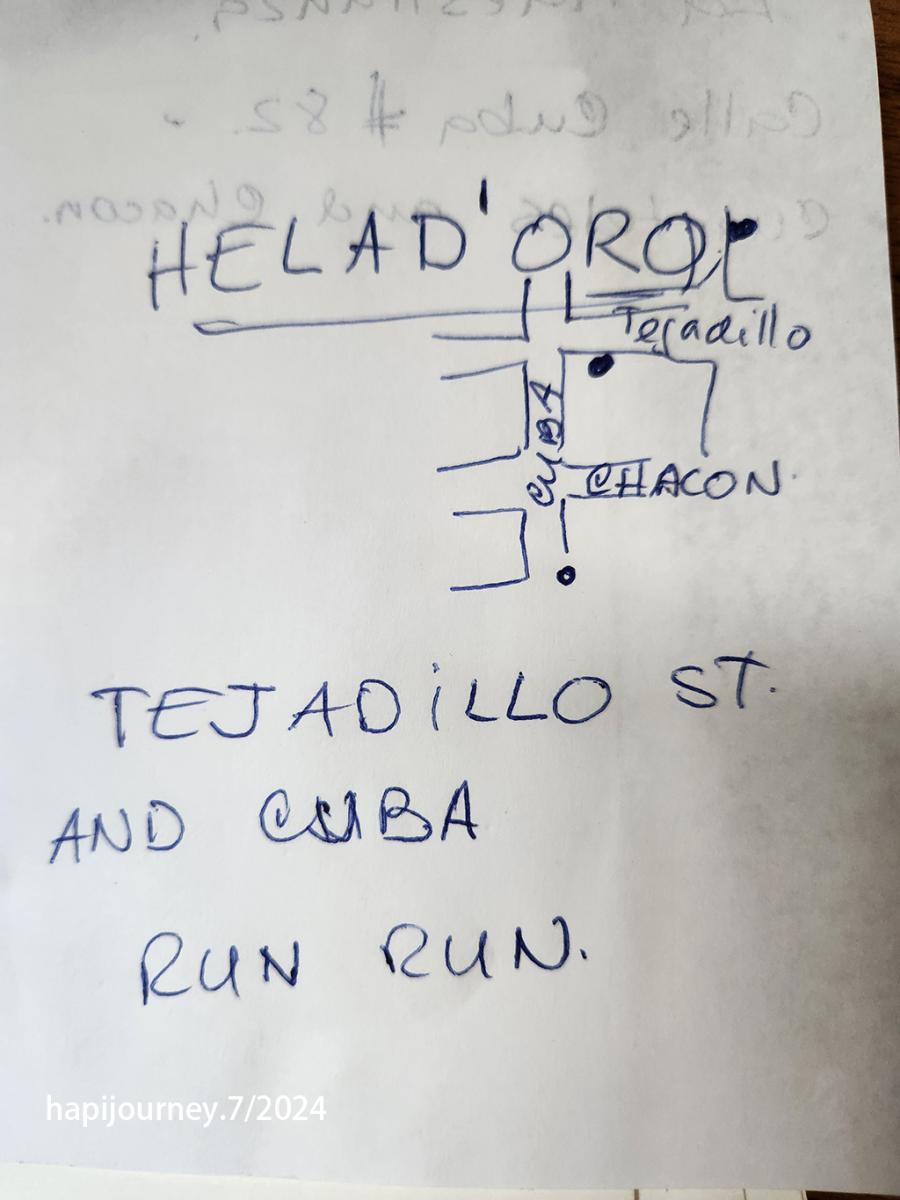 HELAD'ORO
Tejadillo
CUBA
CHACON.
TEJADiLLO ST.
AND CUBA
RUN RUN.
hapijourney.7/2024
Calle Cuba # 82.
and Chacon.